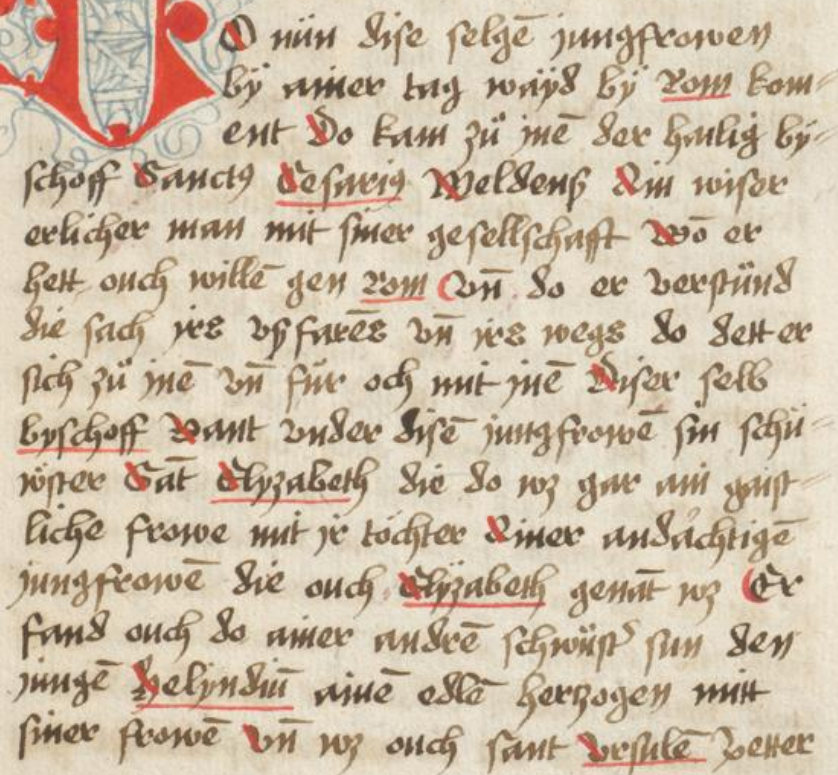 DO nün dise selgē jungfrowen
by ainer tag wayd by Rom kom-
ent Do kam zü jnē der hailig by-
schoff Sanctꝰ Cesariꝰ Meldenß Ain wiser
erlicher man mit siner gesellschafft Wō er
hett ouch willē gen Rom Vn̄ do er verstünd
die sach jrs vßfarēs vn̄ jrs wegs do dett er
sich zü jnē vn̄ für och mit jnē Diser selb
byschoff Vant vnder disē jungfrowē sin schü-
wster Sāt Elyzabeth die do wz gar ain gaist-
liche frowe mit jr tochter Ainer andächtigē
jungfrowē die ouch Elyzabeth genāt wz Er
fand ouch do ainer andrē schwüst' sun den
jungē Velyndiū ainē edlē herzogen mitt
siner frowē vn̄ wz ouch sant Vrsulē vetter